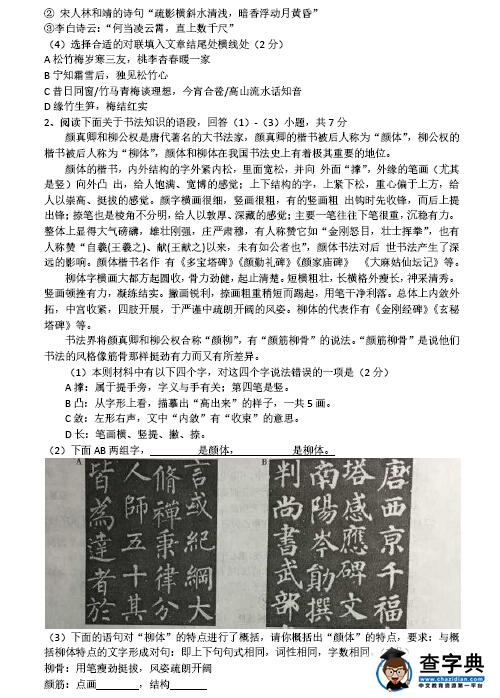 ② 宋人林和靖的诗句“疏影横斜水清浅，暗香浮动月黄昏”
③李白诗云：“何当凌云霄，直上数千尺”
（4）选择合适的对联填入文章结尾处横线处（2 分）
A 松竹梅岁寒三友，桃李杏春暖一家
B 宁知霜雪后，独见松竹心
C 昔日同窗/竹马青梅谈理想，今宵合巹/高山流水话知音
D 缘竹生笋，梅结红实
2、阅读下面关于书法知识的语段，回答（1）-（3）小题，共 7 分
颜真卿和柳公权是唐代著名的大书法家，颜真卿的楷书被后人称为“颜体”，柳公权的
楷书被后人称为“柳体”，颜体和柳体在我国书法史上有着极其重要的地位。
颜体的楷书，内外结构的字外紧内松，里面宽松，并向 外面“撑”，外缘的笔画（尤其
是竖）向外凸 出，给人饱满、宽博的感觉；上下结构的字，上紧下松，重心偏于上方，给
人以崇高、挺拔的感觉。颜字横画很细，竖画很粗，有的竖画粗 出钩时先收锋，而后上提
出锋；捺笔也是棱角不分明，给人以敦厚、深藏的感觉；主要一笔往往下笔很重，沉稳有力。
整体上显得大气磅礴，雄壮刚强，庄严肃穆，有人称赞它如“金刚怒目，壮士挥拳”，也有
人称赞“自羲(王羲之)、献(王献之)以来，未有如公者也”，颜体书法对后 世书法产生了深
远的影响。颜体楷书名作 有《多宝塔碑》《颜勤礼碑》《颜家庙碑》 《大麻姑仙坛记》等。
柳体字横画大都方起圆收，骨力劲健，起止清楚。短横粗壮，长横格外瘦长，神采清秀。
竖画领挫有力，凝练结实。撇画锐利，捺画粗重稍短而踢起，用笔干净利落。总体上内敛外
拓，中宫收紧，四肢开展，于严谨中疏朗开阔的风姿。柳体的代表作有《金刚经碑》《玄秘
塔碑》等。
书法界将颜真卿和柳公权合称“颜柳”，有“颜筋柳骨”的说法。“颜筋柳骨”是说他们
书法的风格像筋骨那样挺劲有力而又有所差异。
（1）本则材料中有以下四个字，对这四个字说法错误的一项是（2 分）
A 撑：属于提手旁，字义与手有关；第四笔是竖。
B 凸：从字形上看，描摹出“高出来”的样子，一共 5 画。
C 敛：左形右声，文中“内敛”有“收束”的意思。
D 长：笔画横、竖提、撇、捺。
（2）下面 AB 两组字，__________是颜体，__________是柳体。
A
言或纪纲大
脩禅秉律分
人師五十其
皆為達者於
B
唐西京千福
塔感應碑文
南陽岑勛撰
判尚書武部
（3）下面的语句对“柳体”的特点进行了概括，请你概括出“颜体”的特点，要求：与概
括柳体特点的文字形成对句：即上下句句式相同，词性相同，字数相同
柳骨：用笔瘦劲挺拔，风姿疏朗开阔
颜筋：点画________，结构________
查字典
中文教育资源第一平台